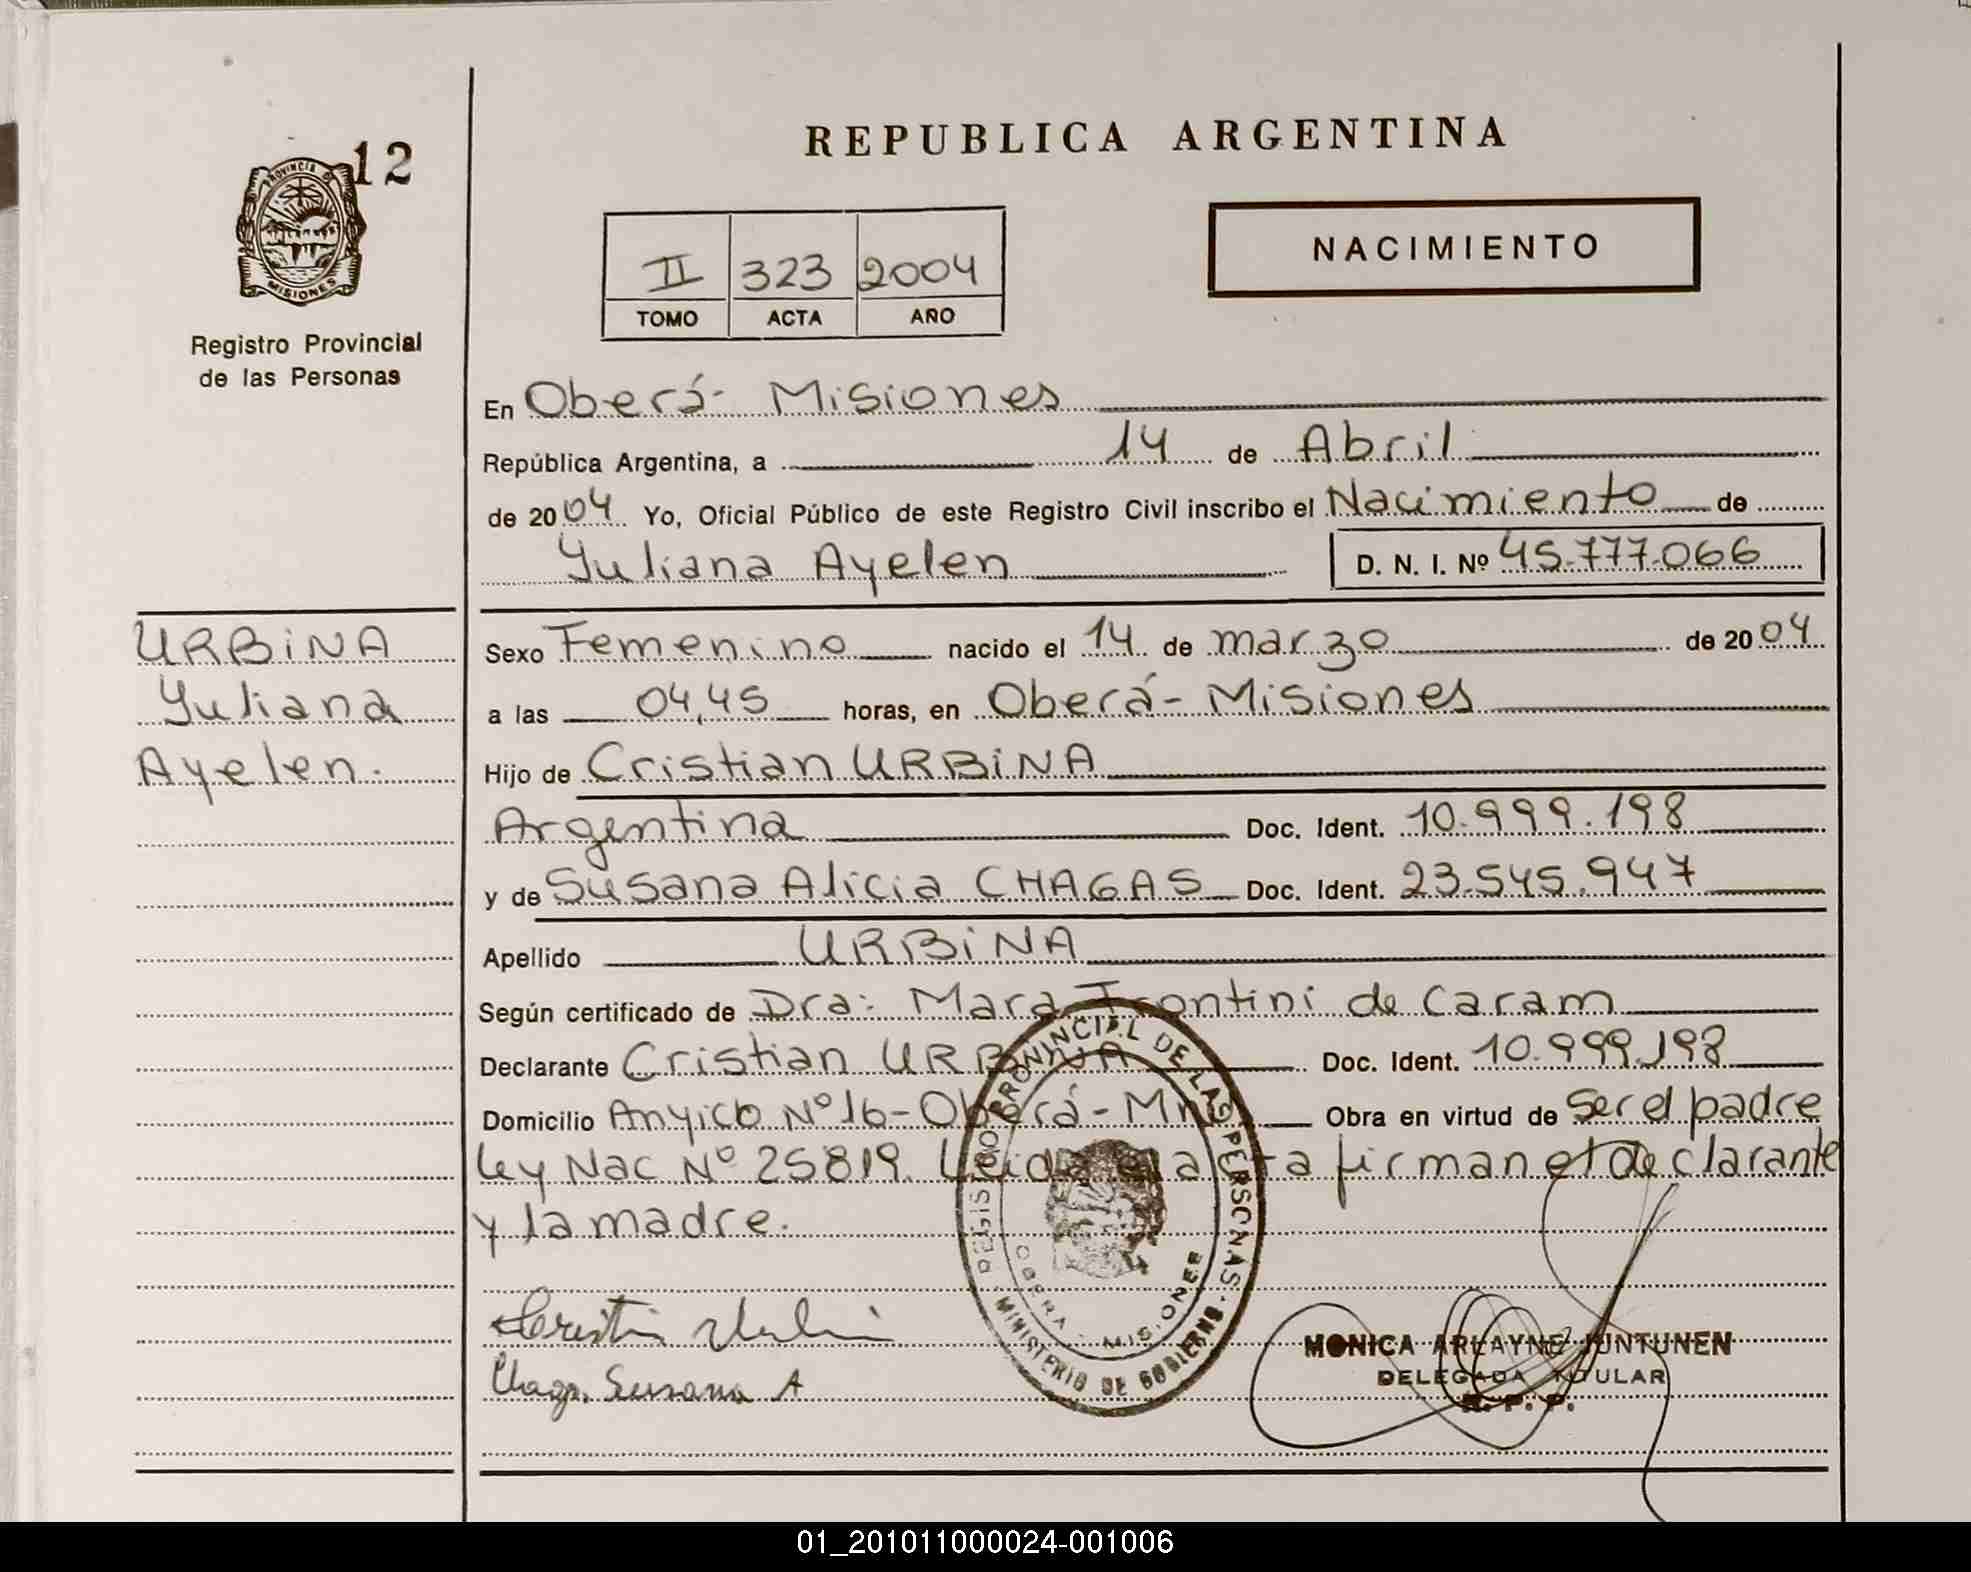 12
PROVINCIA DE
MISIONES
Registro Provincial
de las Personas
REPUBLICA ARGENTINA
II 323 2004
TOMO ACTA AÑO
NACIMIENTO
En Oberá- Misiones
República Argentina, a 14 de Abril
de 2004 Yo, Oficial Público de este Registro Civil inscribo el Nacimiento de
Yuliana Ayelen D. N. I. Nº 45.777.066
URBINA
Yuliana
Ayelen.
Sexo Femenino nacido el 14 de marzo de 2004
a las 04,45 horas, en Oberá- Misiones
Hijo de Cristian URBINA
Argentina Doc. Ident. 10.999.198
y de Susana Alicia CHAGAS Doc. Ident. 23.545.947
Apellido URBINA
Según certificado de Dra: Mara Frontini de Caram
Declarante Cristian URBINA Doc. Ident. 10.999.198
Domicilio Anyico Nº 16-Oberá-Mnes Obra en virtud de Ser el padre
Ley Nac Nº 25819. Leida el acta firman el declarante
y la madre.
REGISTRO PROVINCIAL DE LAS PERSONAS
MINISTERIO DE GOBIERNO
OBERA - MISIONES
Chaga Susana A
MONICA ARLAYNE JUNTUNEN
DELEGADA TITULAR
R. P. P.
01_201011000024-001006